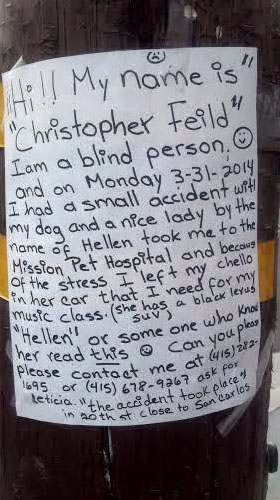 "Hi!! My name is"
"Christopher Feild"
I am a blind person. ☺
and on Monday 3-31-2014
I had a small accident with
my dog and a nice lady by the
name of Hellen took me to the
Mission Pet Hospital and because
of the stress I left my chello
in her car that I need for my
music class. (she has a black lexus
suv)
"Hellen" or some one who know
her read this ☺ Can you pleas
please contact me at (415) 282-
1695 or (415) 678-9267 ask for
Leticia. "the accident took place
in 20th st close to San Carlos